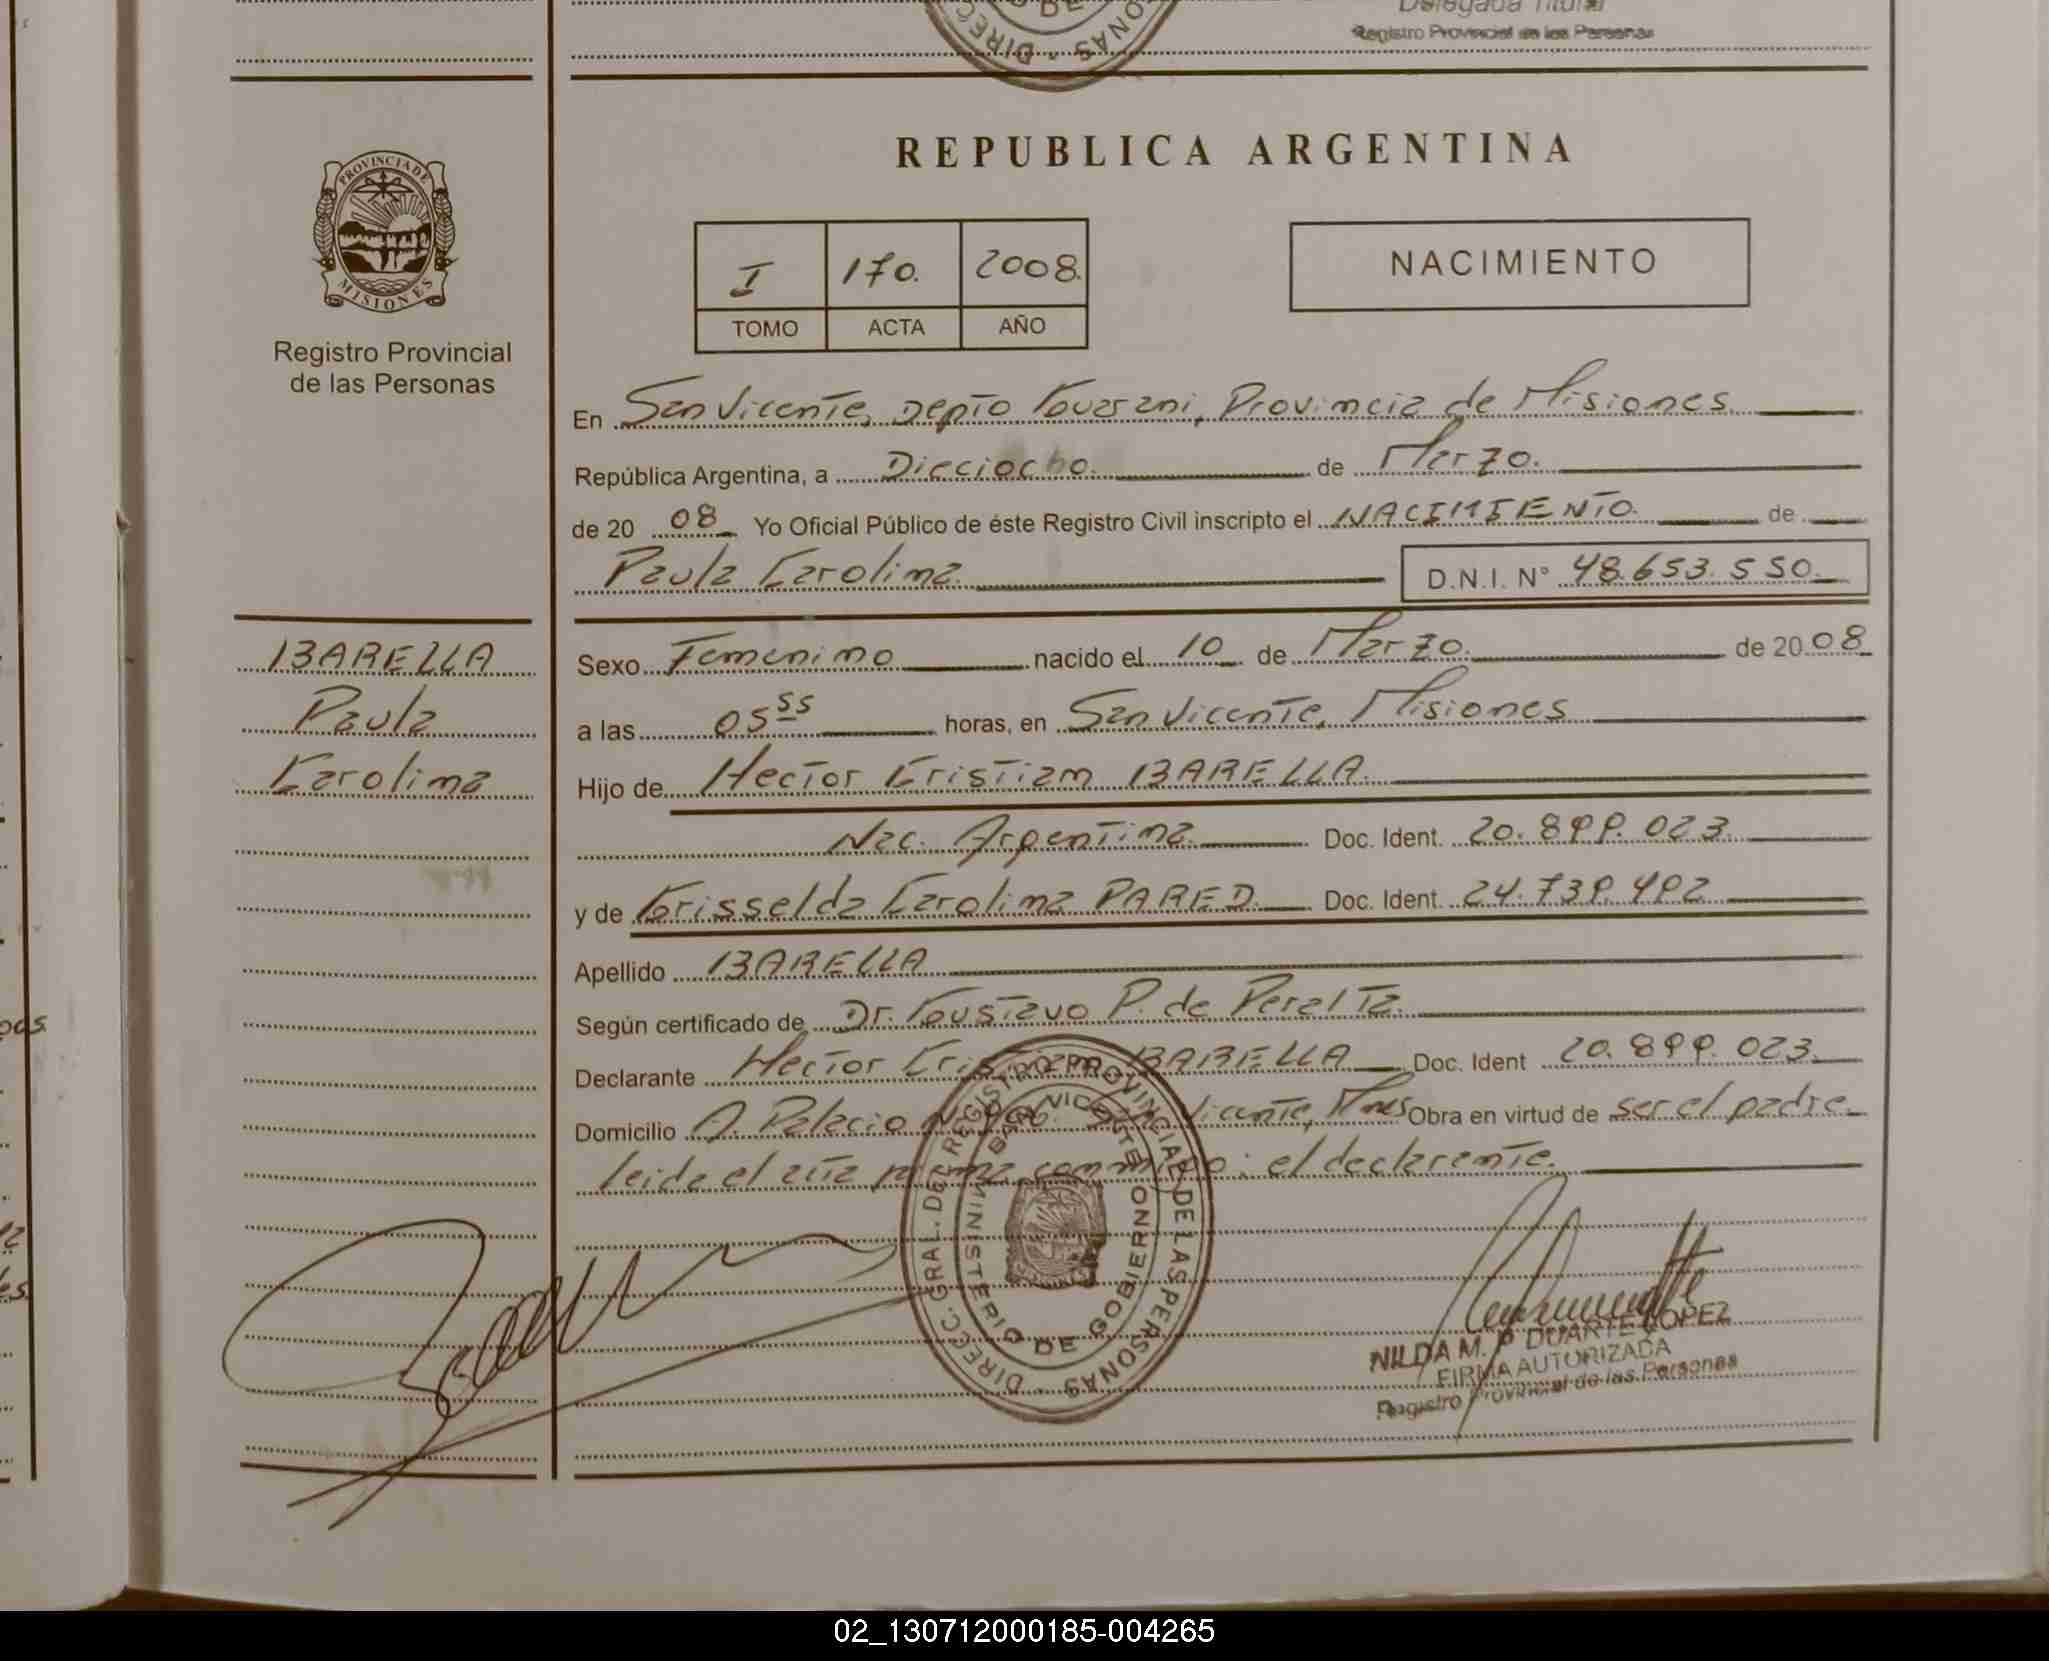 Delegada Titular
Registro Provincial de las Personas
DIREC ONAS
REPUBLICA ARGENTINA
PROVINCIA DE MISIONES
Registro Provincial
de las Personas
I 170. 2008.
TOMO ACTA AÑO
NACIMIENTO
En San Vicente, Depto Guarani, Provincia de Misiones
República Argentina, a Dieciocho. de Marzo.
de 20 08 Yo Oficial Público de éste Registro Civil inscripto el NACIMIENTO. de
Paula Carolina. D.N.I. N° 48.653.550.
BARELLA
Paula
Carolina
Sexo Femenino nacido el 10 de Marzo. de 20 08
a las 05 55 horas, en San Vicente, Misiones
Hijo de Hector Cristian BARELLA.
Nac. Argentina Doc. Ident. 20.899.023.
y de Grisselda Carolina PARED. Doc. Ident. 24.739.492
Apellido BARELLA
Según certificado de Dr. Gustavo P. de Peralta.
Declarante Hector Cristian BARELLA Doc. Ident 20.899.023.
Domicilio A. Palacio Vicente, Mnes Obra en virtud de ser el padre.
leida el acta firma conmigo: el declarante.
DIREC. GRAL. DEL REGISTRO PROVINCIAL DE LAS PERSONAS
MINISTERIO DE GOBIERNO
NILDA M. P DUARTE LOPEZ
FIRMA AUTORIZADA
Registro Provincial de las Personas
02_130712000185-004265